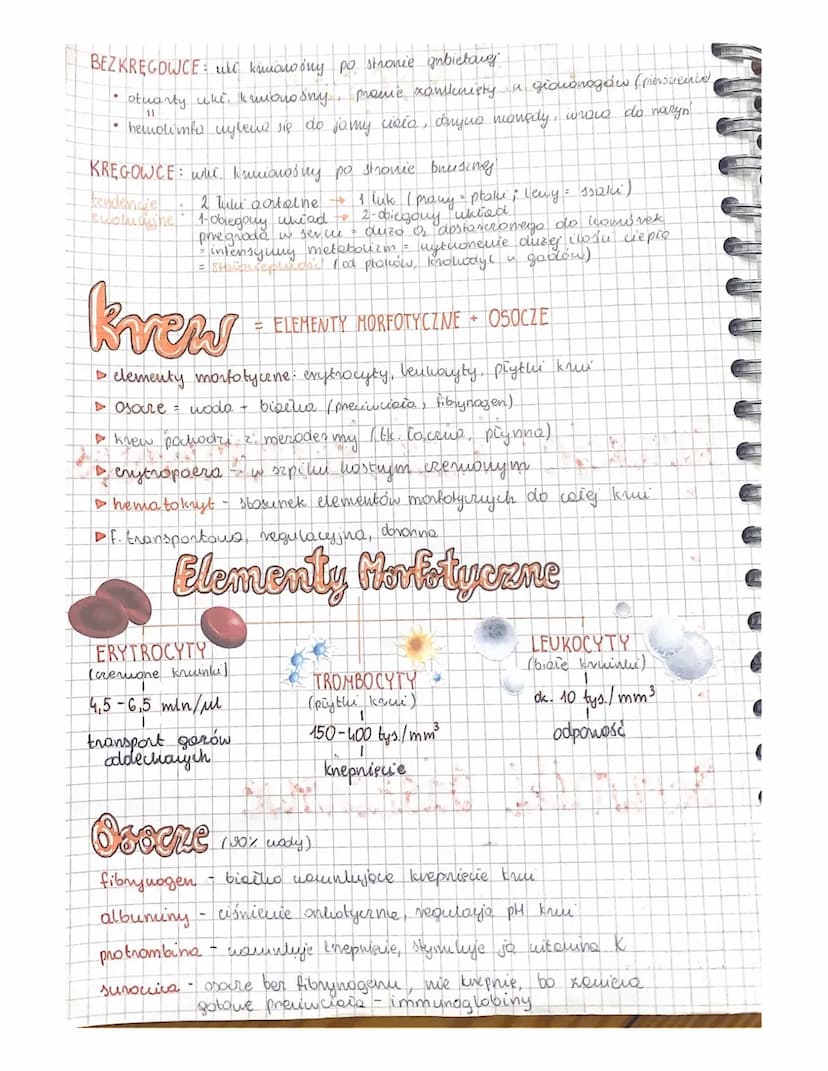 BEZKRĘGOWCE: ukł. krwionośny po stronie grzbietowej
• otwarty ukł. krwionośny, prawie zamknięty u głowonogów (pierścienic)
• hemolimfa wylewa się do jamy ciała, omywa narządy, wraca do naczyń
KRĘGOWCE: ukł. krwionośny po stronie brzusznej
tendencje ewolucyjne:
2 łuki aortalne → 1 łuk (prawy = ptaki; lewy = ssaki)
1-obiegowy układ → 2-obiegowy układ
przegroda w sercu = dużo O₂ dostarczonego do komórek
= intensywny metabolizm = wytworzenie dużej ilości ciepła
= stałocieplność (od ptaków, krokodyl u gadów)
krew = ELEMENTY MORFOTYCZNE + OSOCZE
▷ elementy morfotyczne: erytrocyty, leukocyty, płytki krwi
▷ osocze = woda + białka (przeciwciała, fibrynogen)
▷ krew pochodzi z mezodermy (tk. łączna, płynna)
▷ erytropoeza - w szpiku kostnym czerwonym
▷ hematokryt - stosunek elementów morfotycznych do całej krwi
▷ f. transportowa, regulacyjna, obronna
Elementy Morfotyczne
ERYTROCYTY
(czerwone krwinki)
4,5-6,5 mln/µl
transport gazów
oddechowych
TROMBOCYTY
(płytki krwi)
150-400 tys./mm³
krzepnięcie
LEUKOCYTY
(białe krwinki)
ok. 10 tys./mm³
odporność
Osocze (90% wody)
fibrynogen - białko warunkujące krzepnięcie krwi
albuminy - ciśnienie onkotyczne, regulacja pH krwi
protrombina - warunkuje krzepnięcie, stymuluje ją witamina K
surowica - osocze bez fibrynogenu, nie krzepnie, bo zawiera
gotowe przeciwciała - immunoglobiny